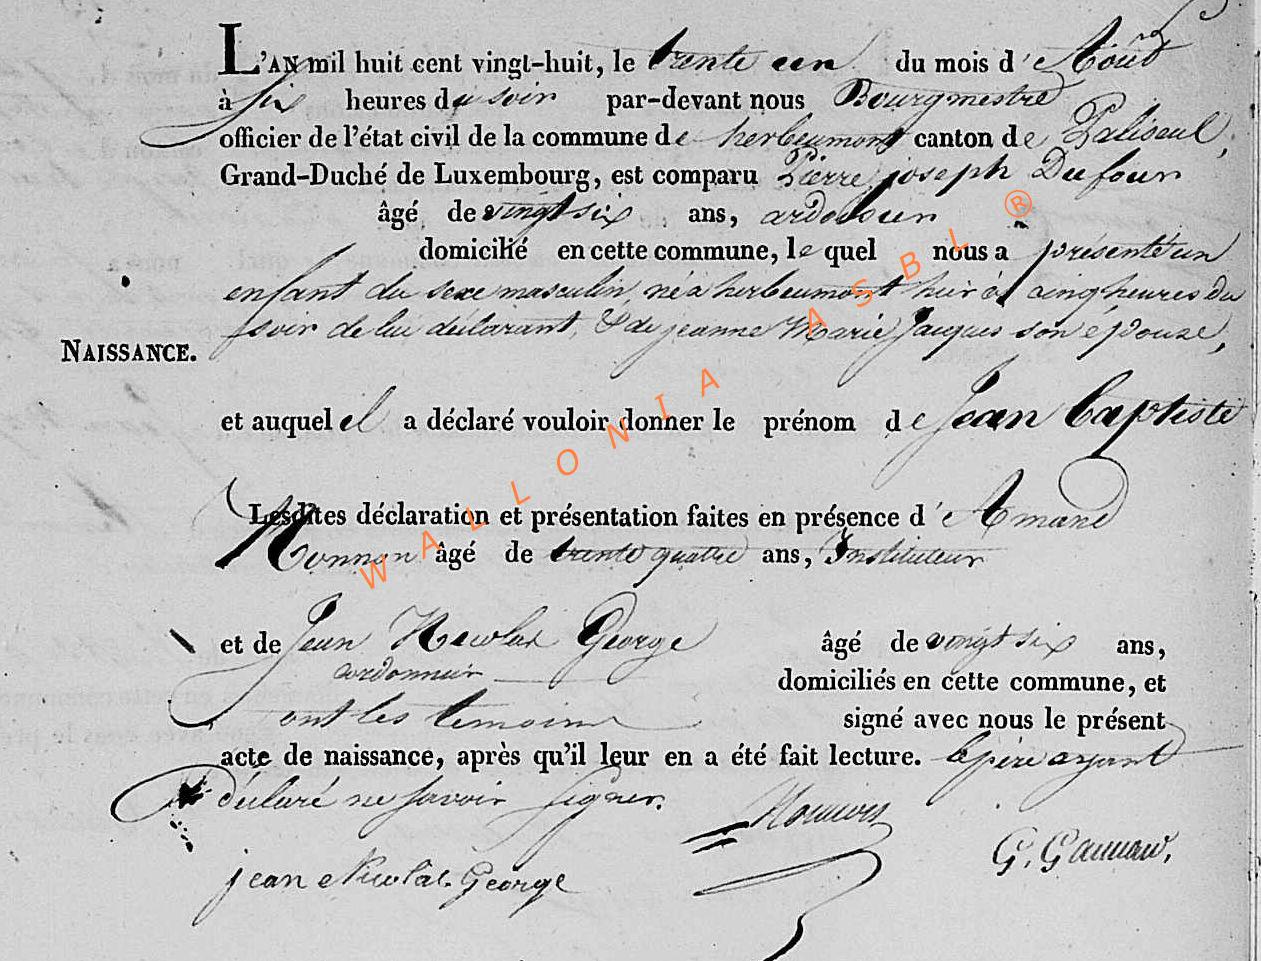 L'AN mil huit cent vingt-huit, le trente un du mois d'Août
à six heures du soir par-devant nous Bourgmestre
officier de l'état civil de la commune de herbeumont canton de Paliseul,
Grand-Duché de Luxembourg, est comparu Pierre joseph Dufour
âgé de vingt six ans, ardoisier
domicilié en cette commune, le quel nous a présenté un
enfant du sexe masculin, né à herbeumont hier à cinq heures du
soir de lui déclarant, & de jeanne Marie Jacques son épouse,
NAISSANCE.
et auquel il a déclaré vouloir donner le prénom de Jean baptiste
Lesdites déclaration et présentation faites en présence d'Amand
âgé de trente quatre ans, Instituteur
et de Jean Nicolas George âgé de vingt six ans,
cordonnier domiciliés en cette commune, et
ont les temoins signé avec nous le présent
acte de naissance, après qu'il leur en a été fait lecture. le père ayant
déclaré ne savoir signer.
jean Nicolas George
WALLONIA ASBL ®